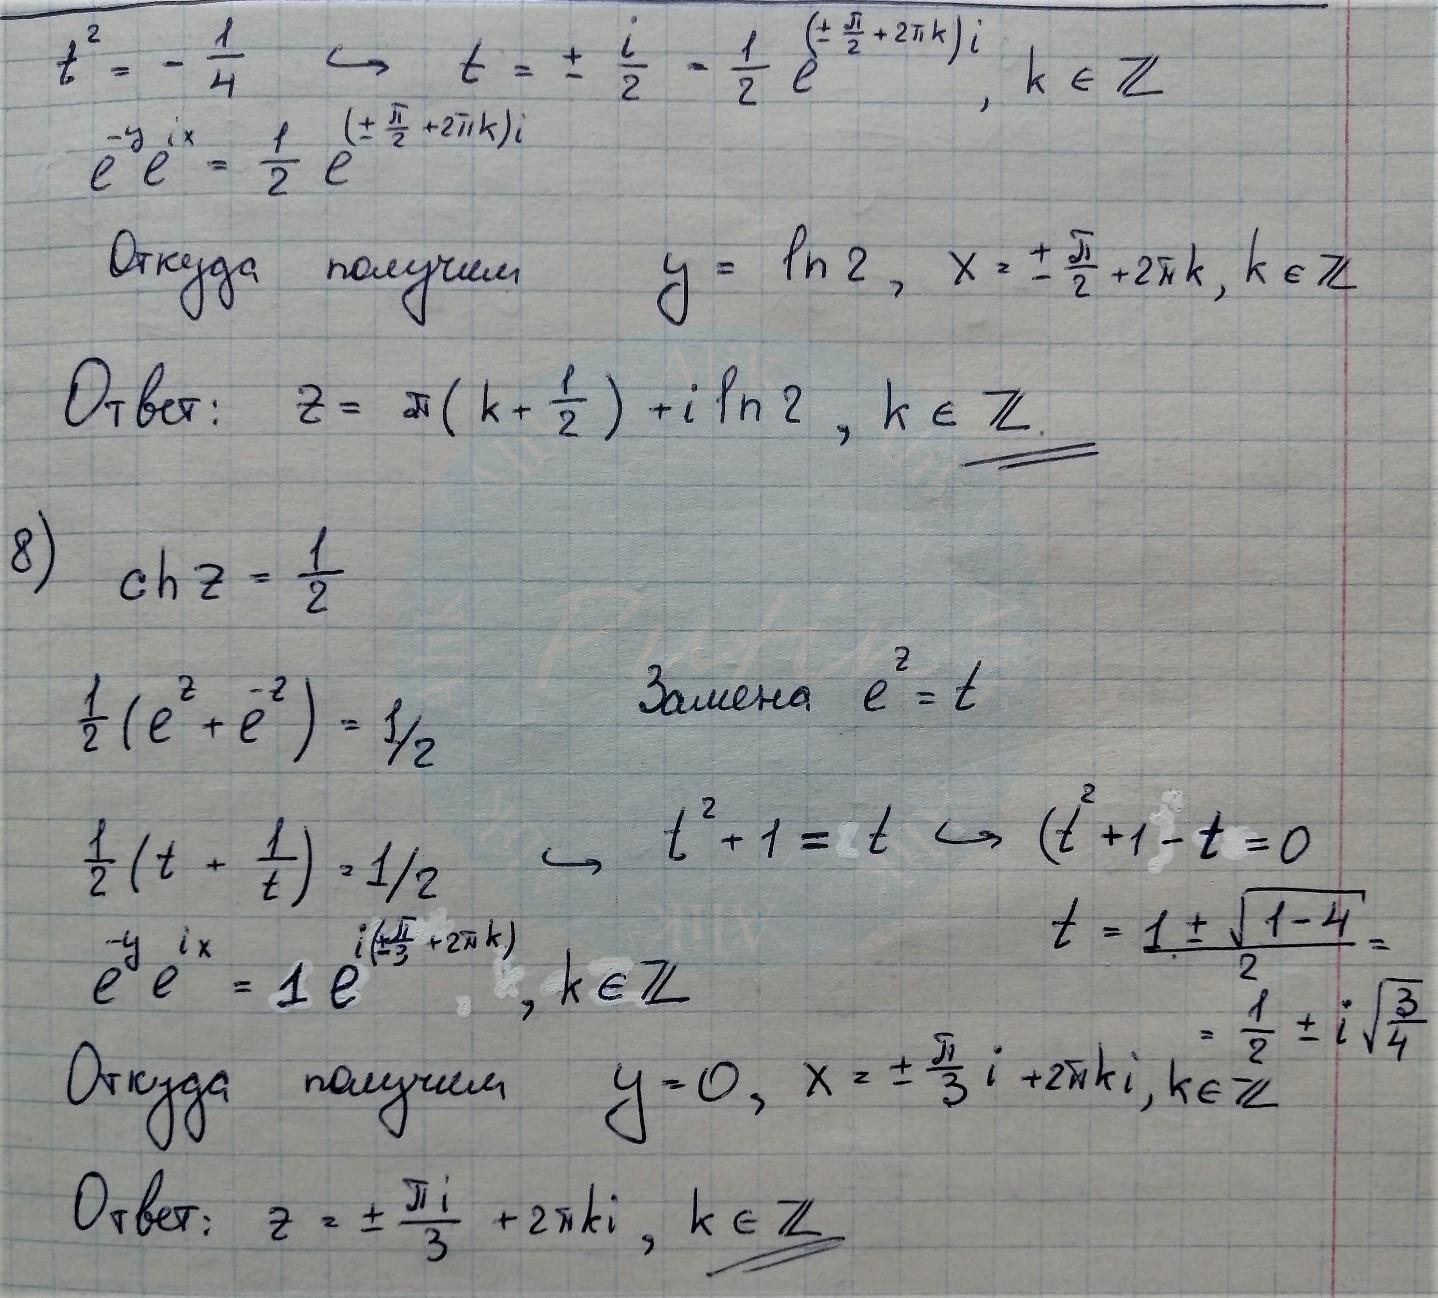 t² = - 1/4 ↪ t = ± i/2 = 1/2 e^((± π/2 + 2πk)i), k ∈ ℤ
e^(-y) e^(ix) = 1/2 e^((± π/2 + 2πk)i)
Откуда получим y = ln2, x = ± π/2 + 2πk, k ∈ ℤ
Ответ: z = π(k + 1/2) + i ln2, k ∈ ℤ.
8) ch z = 1/2
1/2 (e^z + e^(-z)) = 1/2 Замена e^z = t
1/2 (t + 1/t) = 1/2 ↪ t² + 1 = t ↪ (t² + 1) - t = 0
t = (1 ± √(1-4))/2 =
= 1/2 ± i √(3/4)
e^(-y) e^(ix) = 1 e^(i(± π/3 + 2πk)), k ∈ ℤ
Откуда получим y = 0, x = ± π/3 i + 2πki, k ∈ ℤ
Ответ: z = ± πi/3 + 2πki, k ∈ ℤ